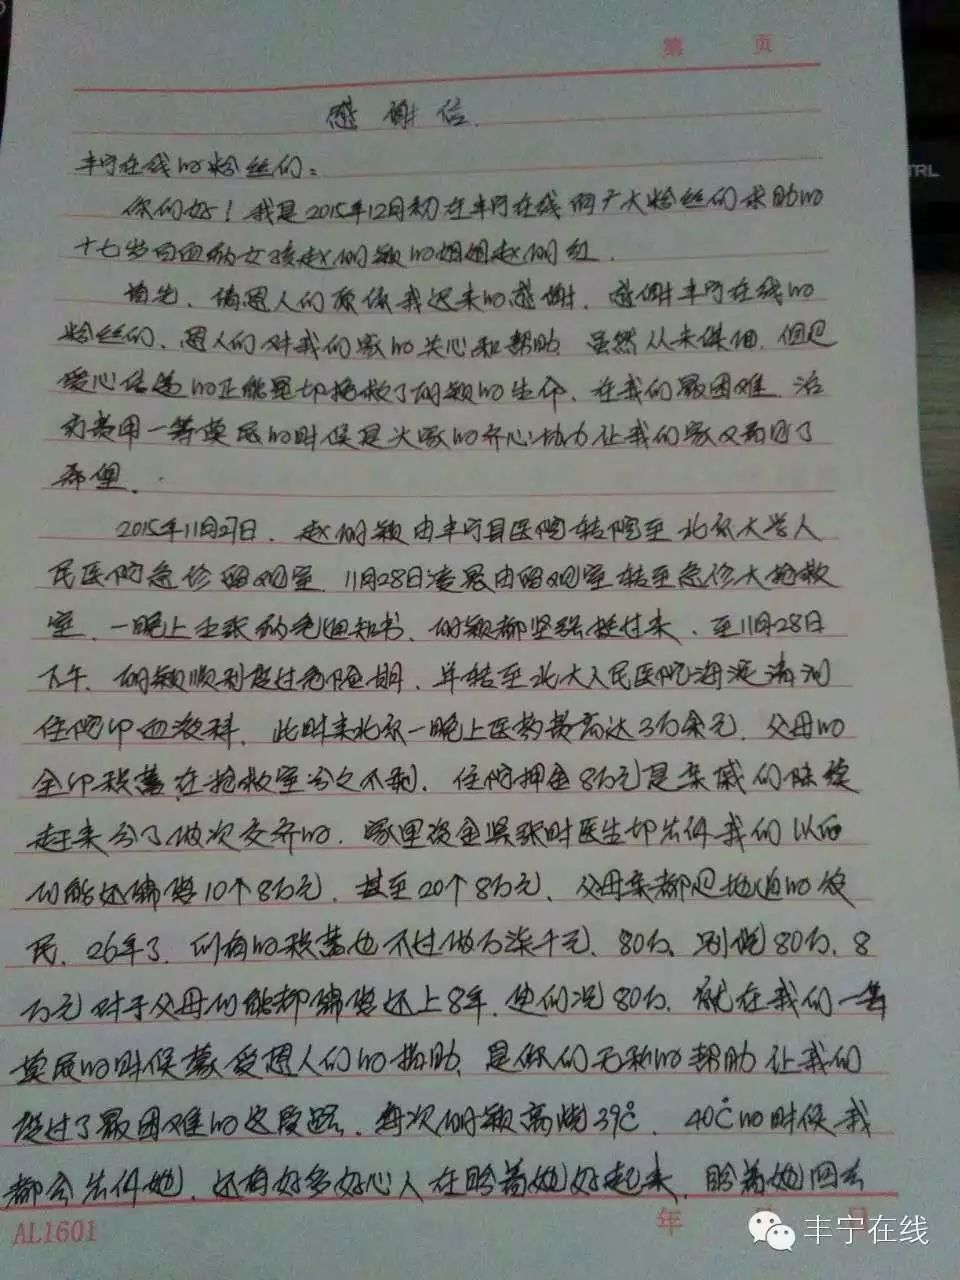 第 页
感谢信
丰宁在线的粉丝们：
你们好！我是2015年12月初在丰宁在线向广大粉丝们求助的
十七岁白血病女孩赵明颖的姐姐赵明红.
首先、请恩人们原谅我迟来的感谢、感谢丰宁在线的
粉丝们、恩人们对我们家的关心和帮助、虽然从未谋面、但是
爱心传递的正能量却拯救了明颖的生命、在我们最困难、治
疗费用一筹莫展的时候是大家的齐心协力让我们家又看到了
希望.
2015年11月27日、赵明颖由丰宁县医院转院至北京大学人
民医院急诊留观室、11月28日凌晨由留观室转至急诊大抢救
室、一晚上主张病危通知书、明颖都坚强挺过来、至11月28日
下午、明颖顺利度过危险期、并转至北大人民医院海淀清河
住院部血液科、此时来北京一晚上医药费高达3万余元、父母的
全部积蓄在抢救室分文不剩、住院押金8万元是亲戚们陆续
赶来分了几次交齐的、家里资金紧张时医生却告诉我们以后
可能还需要10个8万元、甚至20个8万元、父母亲都是地道的农
民、26年了、所有的积蓄也不过几万柒千元、80万、别说80万、8
万元对于父母可能都需要还上8年、更何况80万、就在我们一筹
莫展的时候蒙受恩人们的捐助、是你们无私的帮助让我们
挺过了最困难的这段路、每次明颖高烧39℃、40℃的时候我
都会告诉她、还有好多好心人在盼着她好起来、盼着她回去
AL1601
年 日
丰宁在线
TRL